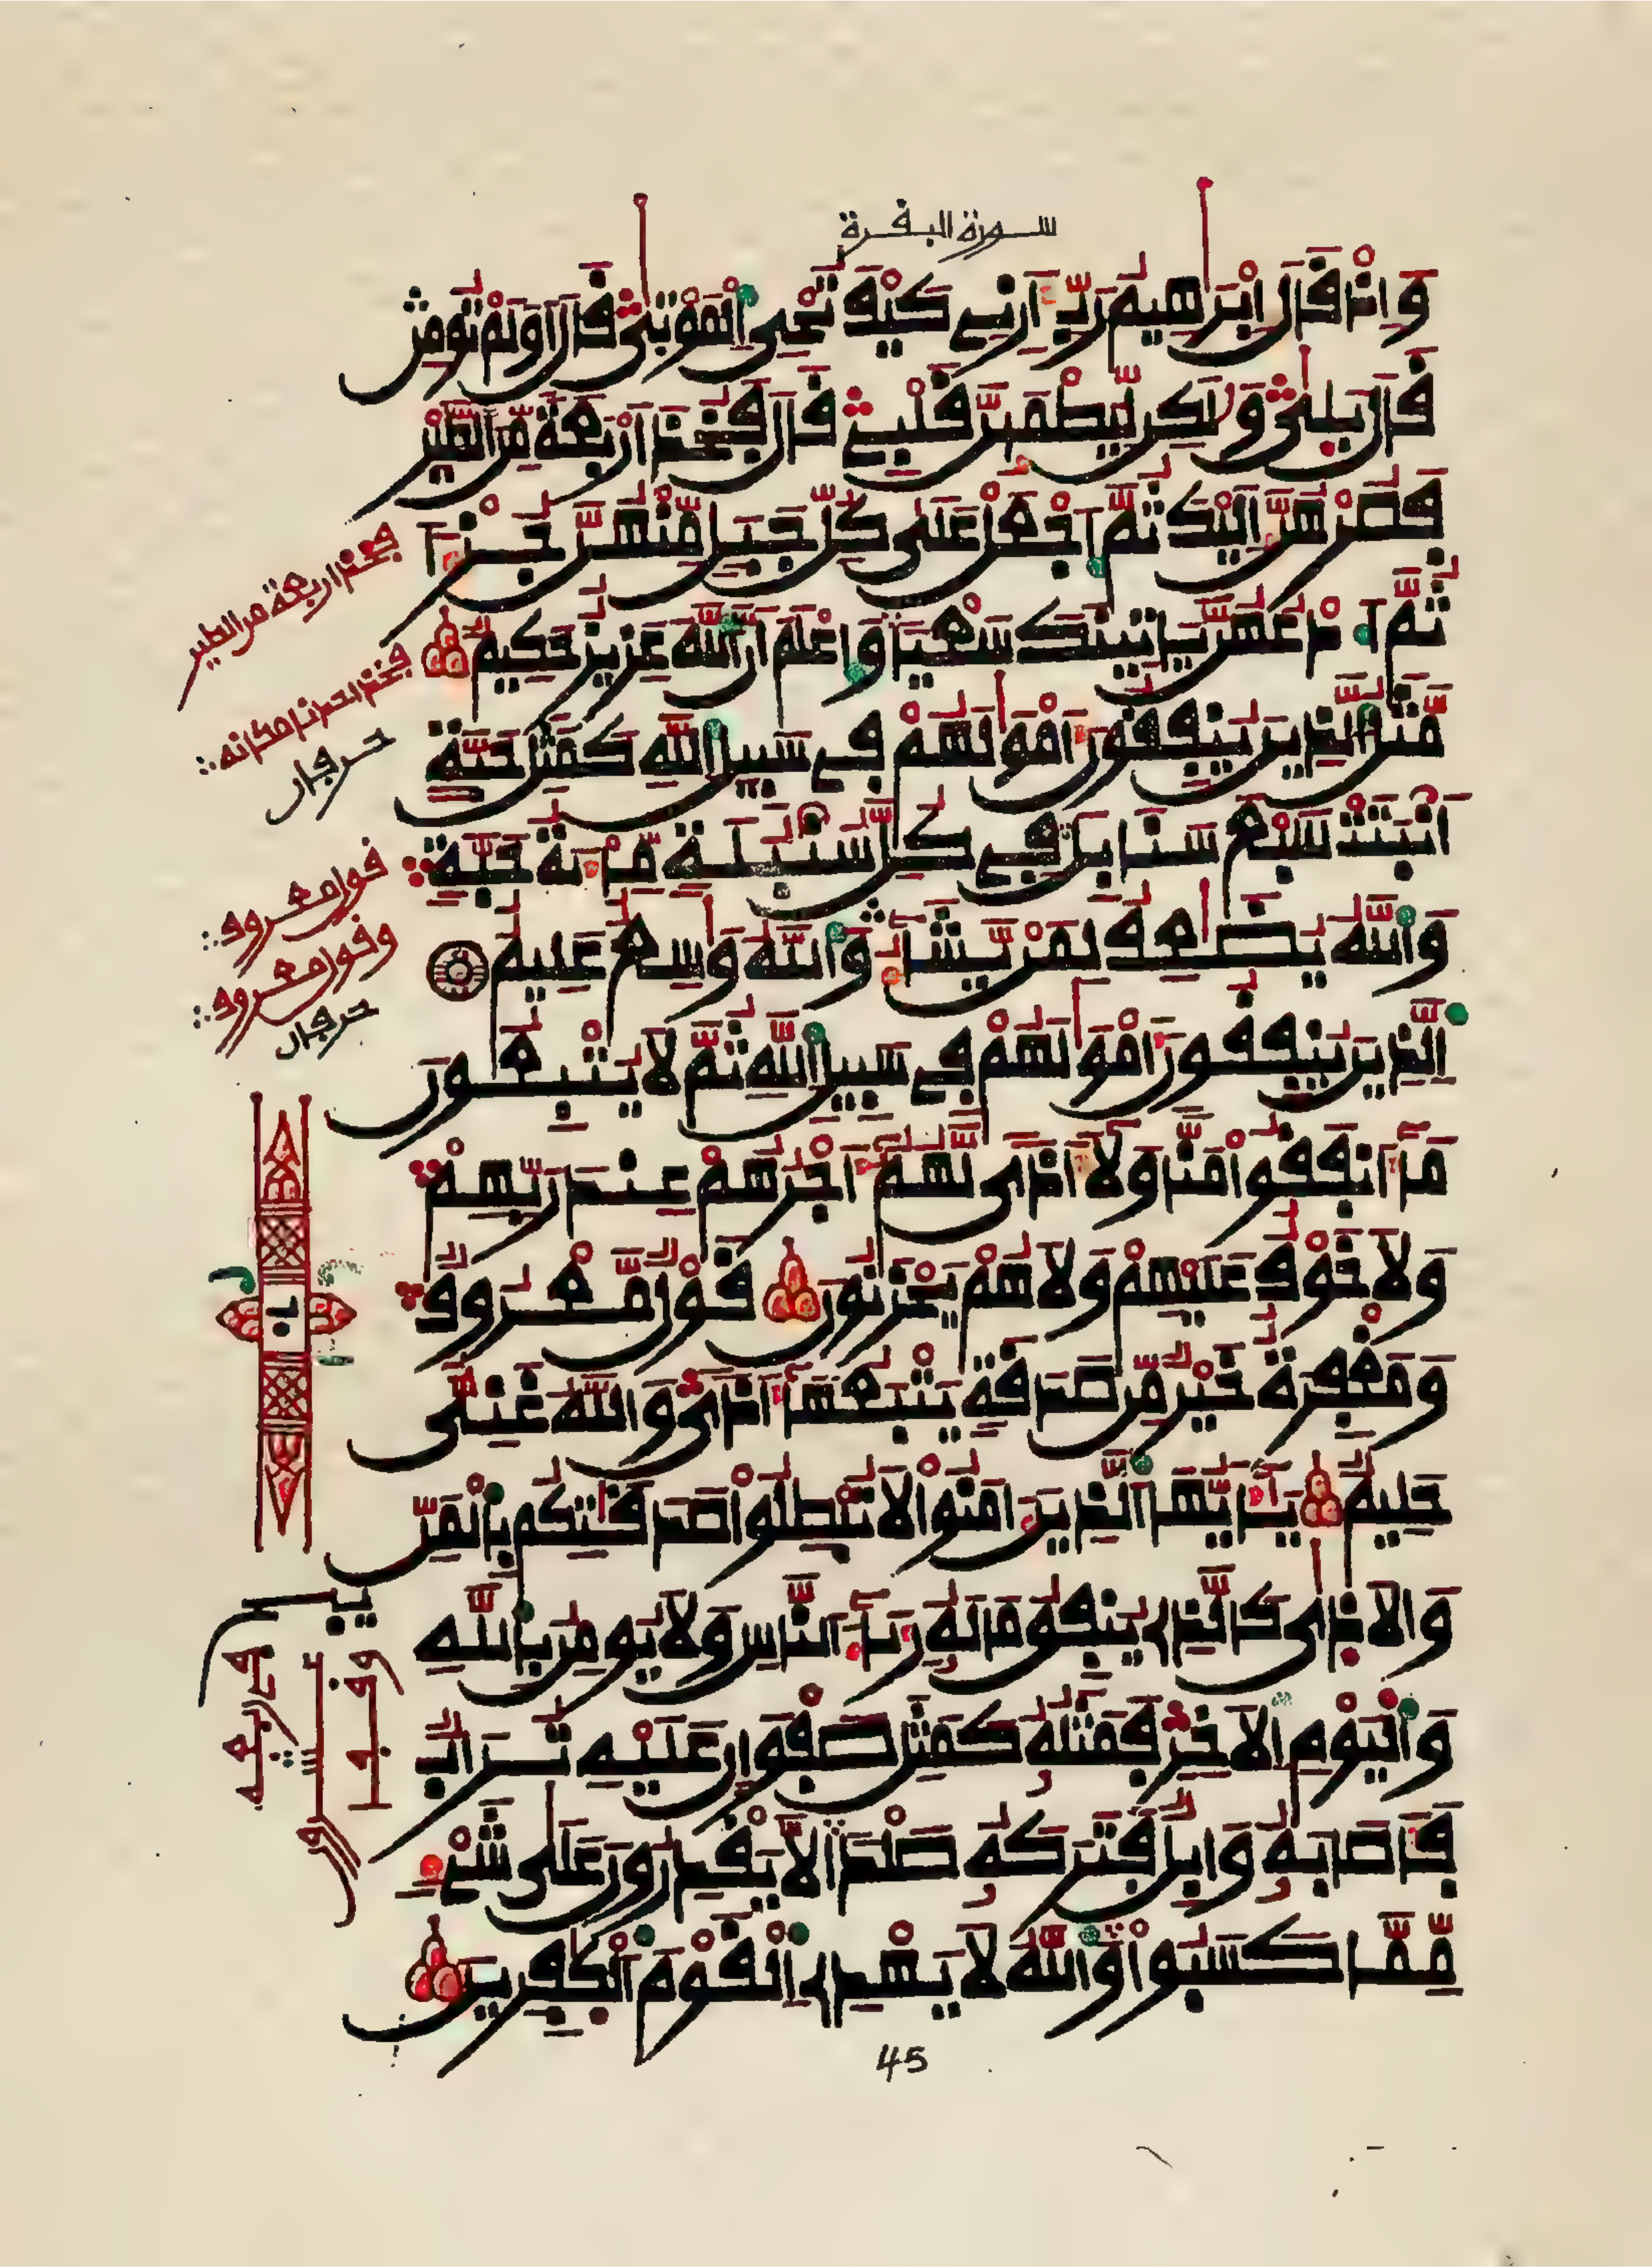 سورة البقرة
وَإِذْ قَالَ إِبْرَٰهِيمُ رَبِّ أَرِنِي كَيْفَ تُحْيِ الْمَوْتَىٰ قَالَ أَوَلَمْ تُومِن
قَالَ بَلَىٰ وَلَٰكِن لِّيَطْمَئِنَّ قَلْبِي قَالَ فَخُذْ أَرْبَعَةً مِّنَ الطَّيْرِ
فَصُرْهُنَّ إِلَيْكَ ثُمَّ اجْعَلْ عَلَىٰ كُلِّ جَبَلٍ مِّنْهُنَّ جُزْءًا
ثُمَّ ادْعُهُنَّ يَاتِينَكَ سَعْيًا وَاعْلَمَ أَنَّ اللَّهَ عَزِيزٌ حَكِيمٌ
مَّثَلُ الَّذِينَ يُنفِقُونَ أَمْوَٰلَهُمْ فِي سَبِيلِ اللَّهِ كَمَثَلِ حَبَّةٍ
أَنۢبَتَتْ سَبْعَ سَنَابِلَ فِي كُلِّ سُنۢبُلَةٍ مِّائَةُ حَبَّةٍ
وَاللَّهُ يُضَٰعِفُ لِمَنْ يَّشَاءُ وَاللَّهُ وَٰسِعٌ عَلِيمٌ
الَّذِينَ يُنفِقُونَ أَمْوَٰلَهُمْ فِي سَبِيلِ اللَّهِ ثُمَّ لَا يُتْبِعُونَ
مَا أَنفَقُوا مَنًّا وَلَا أَذًى لَّهُمْ أَجْرُهُمْ عِندَ رَبِّهِمْ
وَلَا خَوْفٌ عَلَيْهِمْ وَلَا هُمْ يَحْزَنُونَ قَوْلٌ مَّعْرُوفٌ
وَمَغْفِرَةٌ خَيْرٌ مِّن صَدَقَةٍ يَتْبَعُهَا أَذًى وَاللَّهُ غَنِيٌّ
حَلِيمٌ يَا أَيُّهَا الَّذِينَ ءَامَنُوا لَا تُبْطِلُوا صَدَقَٰتِكُم بِالْمَنِّ
وَالْأَذَىٰ كَالَّذِي يُنفِقُ مَالَهُ رِئَاءَ النَّاسِ وَلَا يُومِنُ بِاللَّهِ
وَالْيَوْمِ الْأَخِرِ فَمَثَلُهُ كَمَثَلِ صَفْوَانٍ عَلَيْهِ تُرَابٌ
فَأَصَابَهُ وَابِلٌ فَتَرَكَهُ صَلْدًا لَّا يَقْدِرُونَ عَلَىٰ شَيْءٍ
مِّمَّا كَسَبُوا وَاللَّهُ لَا يَهْدِي الْقَوْمَ الْكَٰفِرِينَ
فخذ اربعة من الطير
فخذ احدنا مكانه
حرفان
قول معروف
وقول معروف
حرفان
45